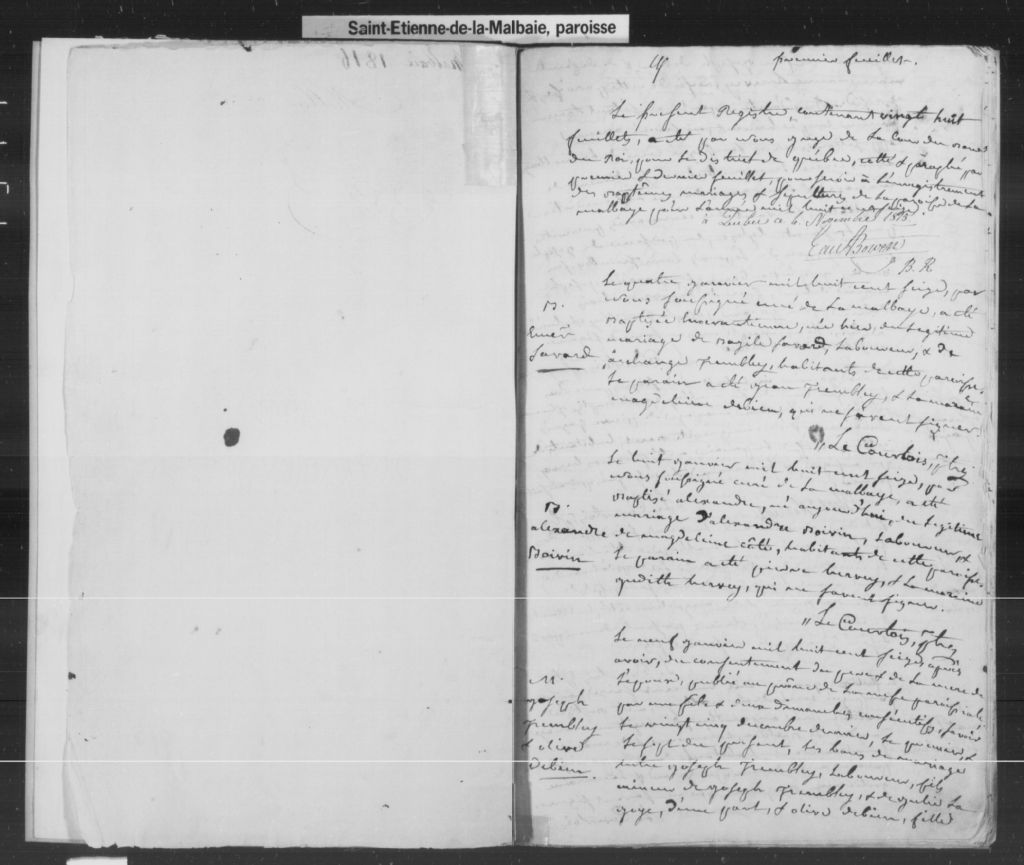 Saint-Etienne-de-la-Malbaie, paroisse
1816
premier feuillet.
Le present Registre, contenant vingt huit
feuillets, a été par nous juge de la Cour du banc
du Roi, pour le district de Québec, cotté & paraphé par
premier & dernier feuillet pour servir à l'enregistrement
des baptêmes mariages & sépultures de la paroisse de la
malbaye pour l'année mil huit cent seize
à Quebec ce 6. Novembre 1815
Edwd Bowen
J B. R
Le quatre janvier mil huit cent seize, par
nous soussigné curé de la malbaye, a été
B.
baptisée, née hier, du legitime
Savard
mariage de basile savard, Laboureur, & de
Trembley, habitants de cette paroisse.
Le parain a été jean Trembley, & la maraine
magdeleine debien, qui ne savent signer.
"Le Courtois, ptre
Le huit janvier mil huit cent seize, par
nous soussigné curé de la malbaye, a été
baptisé alexandre, né aujourd'hui, du legitime
B.
alexandre
Boivin
mariage d'alexandre Boivin, Laboureur, &
de magdeleine côté, habitants de cette paroisse.
Le parain a été pierre hervey, & la maraine
judith hervey, qui ne savent signer.
"Le Courtois, ptre
Le neuf janvier mil huit cent seize, après
avoir, du consentement du pere & de la mere de
M.
joseph
Trembley
& olive
debien.
l'époux, publié au prône de la messe paroissiale
par une fête & deux dimanches consécutifs, savoir
le vingt cinq decembre dernier, le premier, &
le sept du present, les bans de mariage
entre joseph Trembley, Laboureur, fils
mineur de joseph Trembley, & de julie La
joye, d'une part, & olive debien, fille